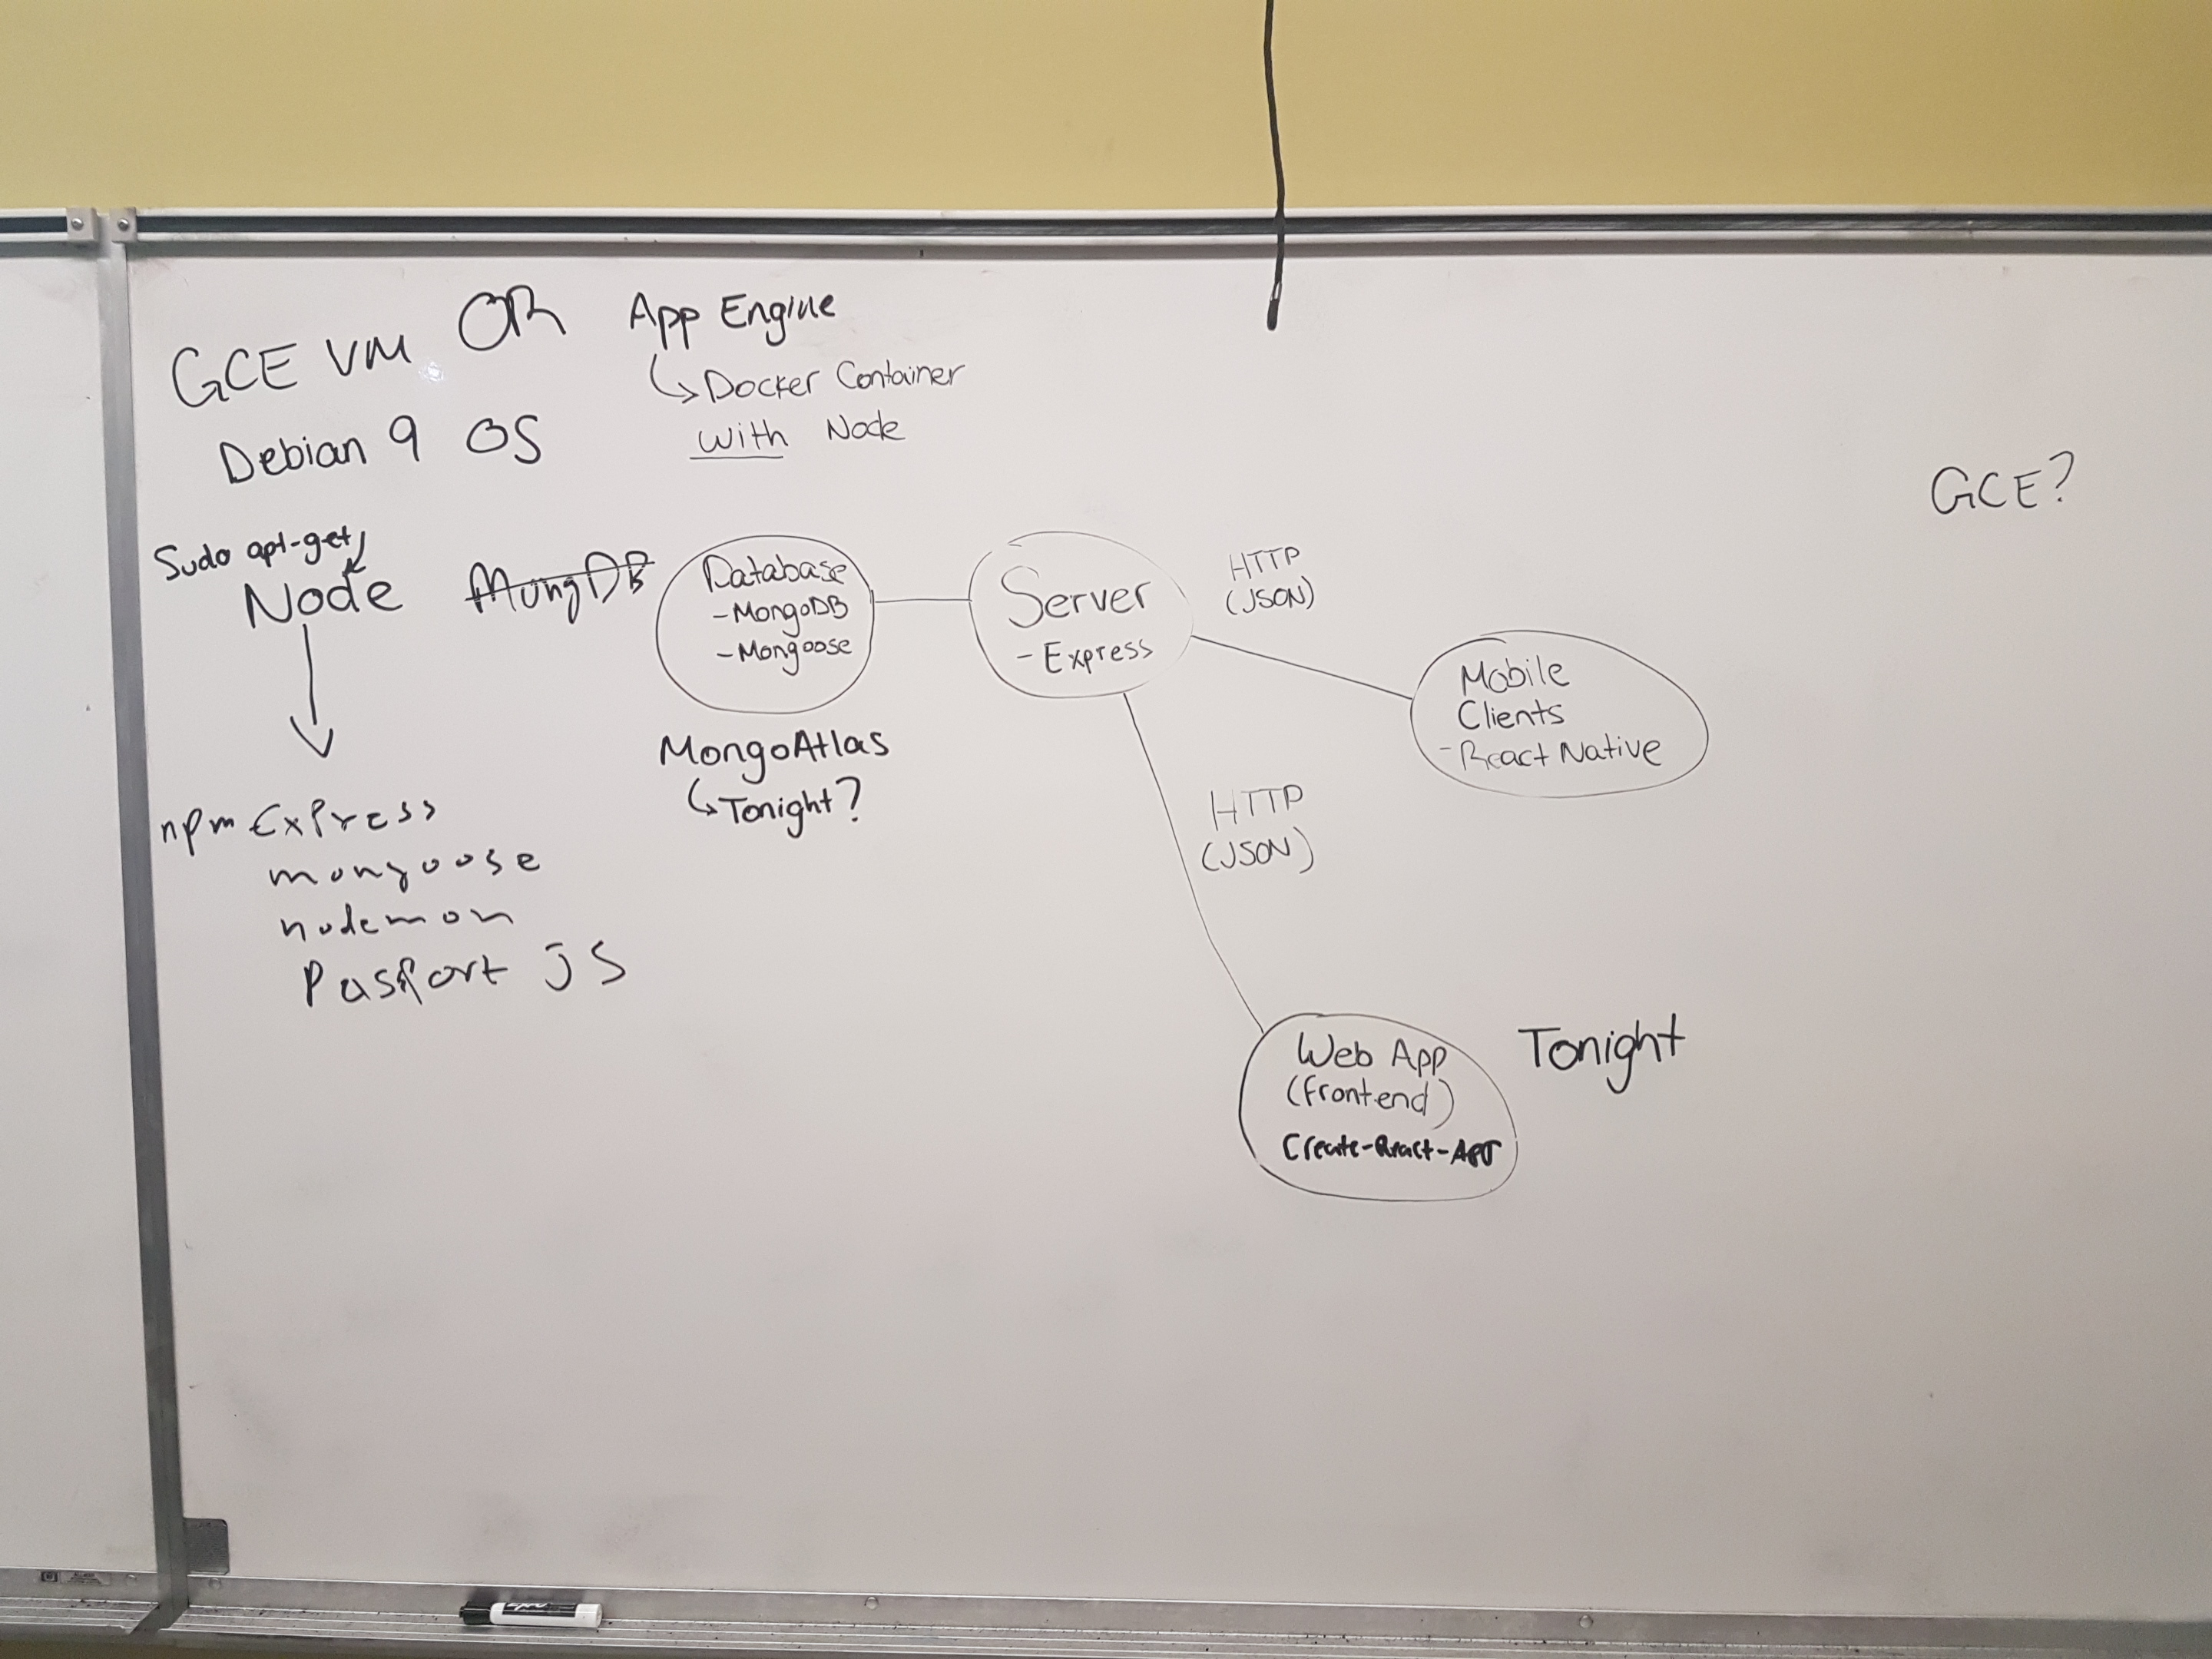 GCE VM OR App Engine
↳ Docker Container
with Node
Debian 9 OS
GCE?
Sudo apt-get
Node
MongDB
npm Express
mongoose
nodemon
Passport JS
Database
- MongoDB
- Mongoose
MongoAtlas
↳ Tonight?
Server
- Express
HTTP
(JSON)
Mobile
Clients
- React Native
HTTP
(JSON)
Web App
(frontend)
Create-React-App
Tonight